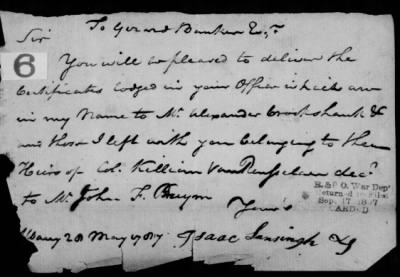 To Gerard Banker Esqr.
Sir
6
You will be pleased to deliver the
Certificates lodged in your Office which are
in my Name to Mr. Alexander Crookshank &
and those I left with you belonging to the
Heirs of Col. Killian Van Renselaer decd.
to Mr. John F. Pruyn
Yours
Albany 28 May 1787 Isaac Lansingh
R. & P. O. War Dep't
Returned to Files
Sep. 17 1887
CARDED